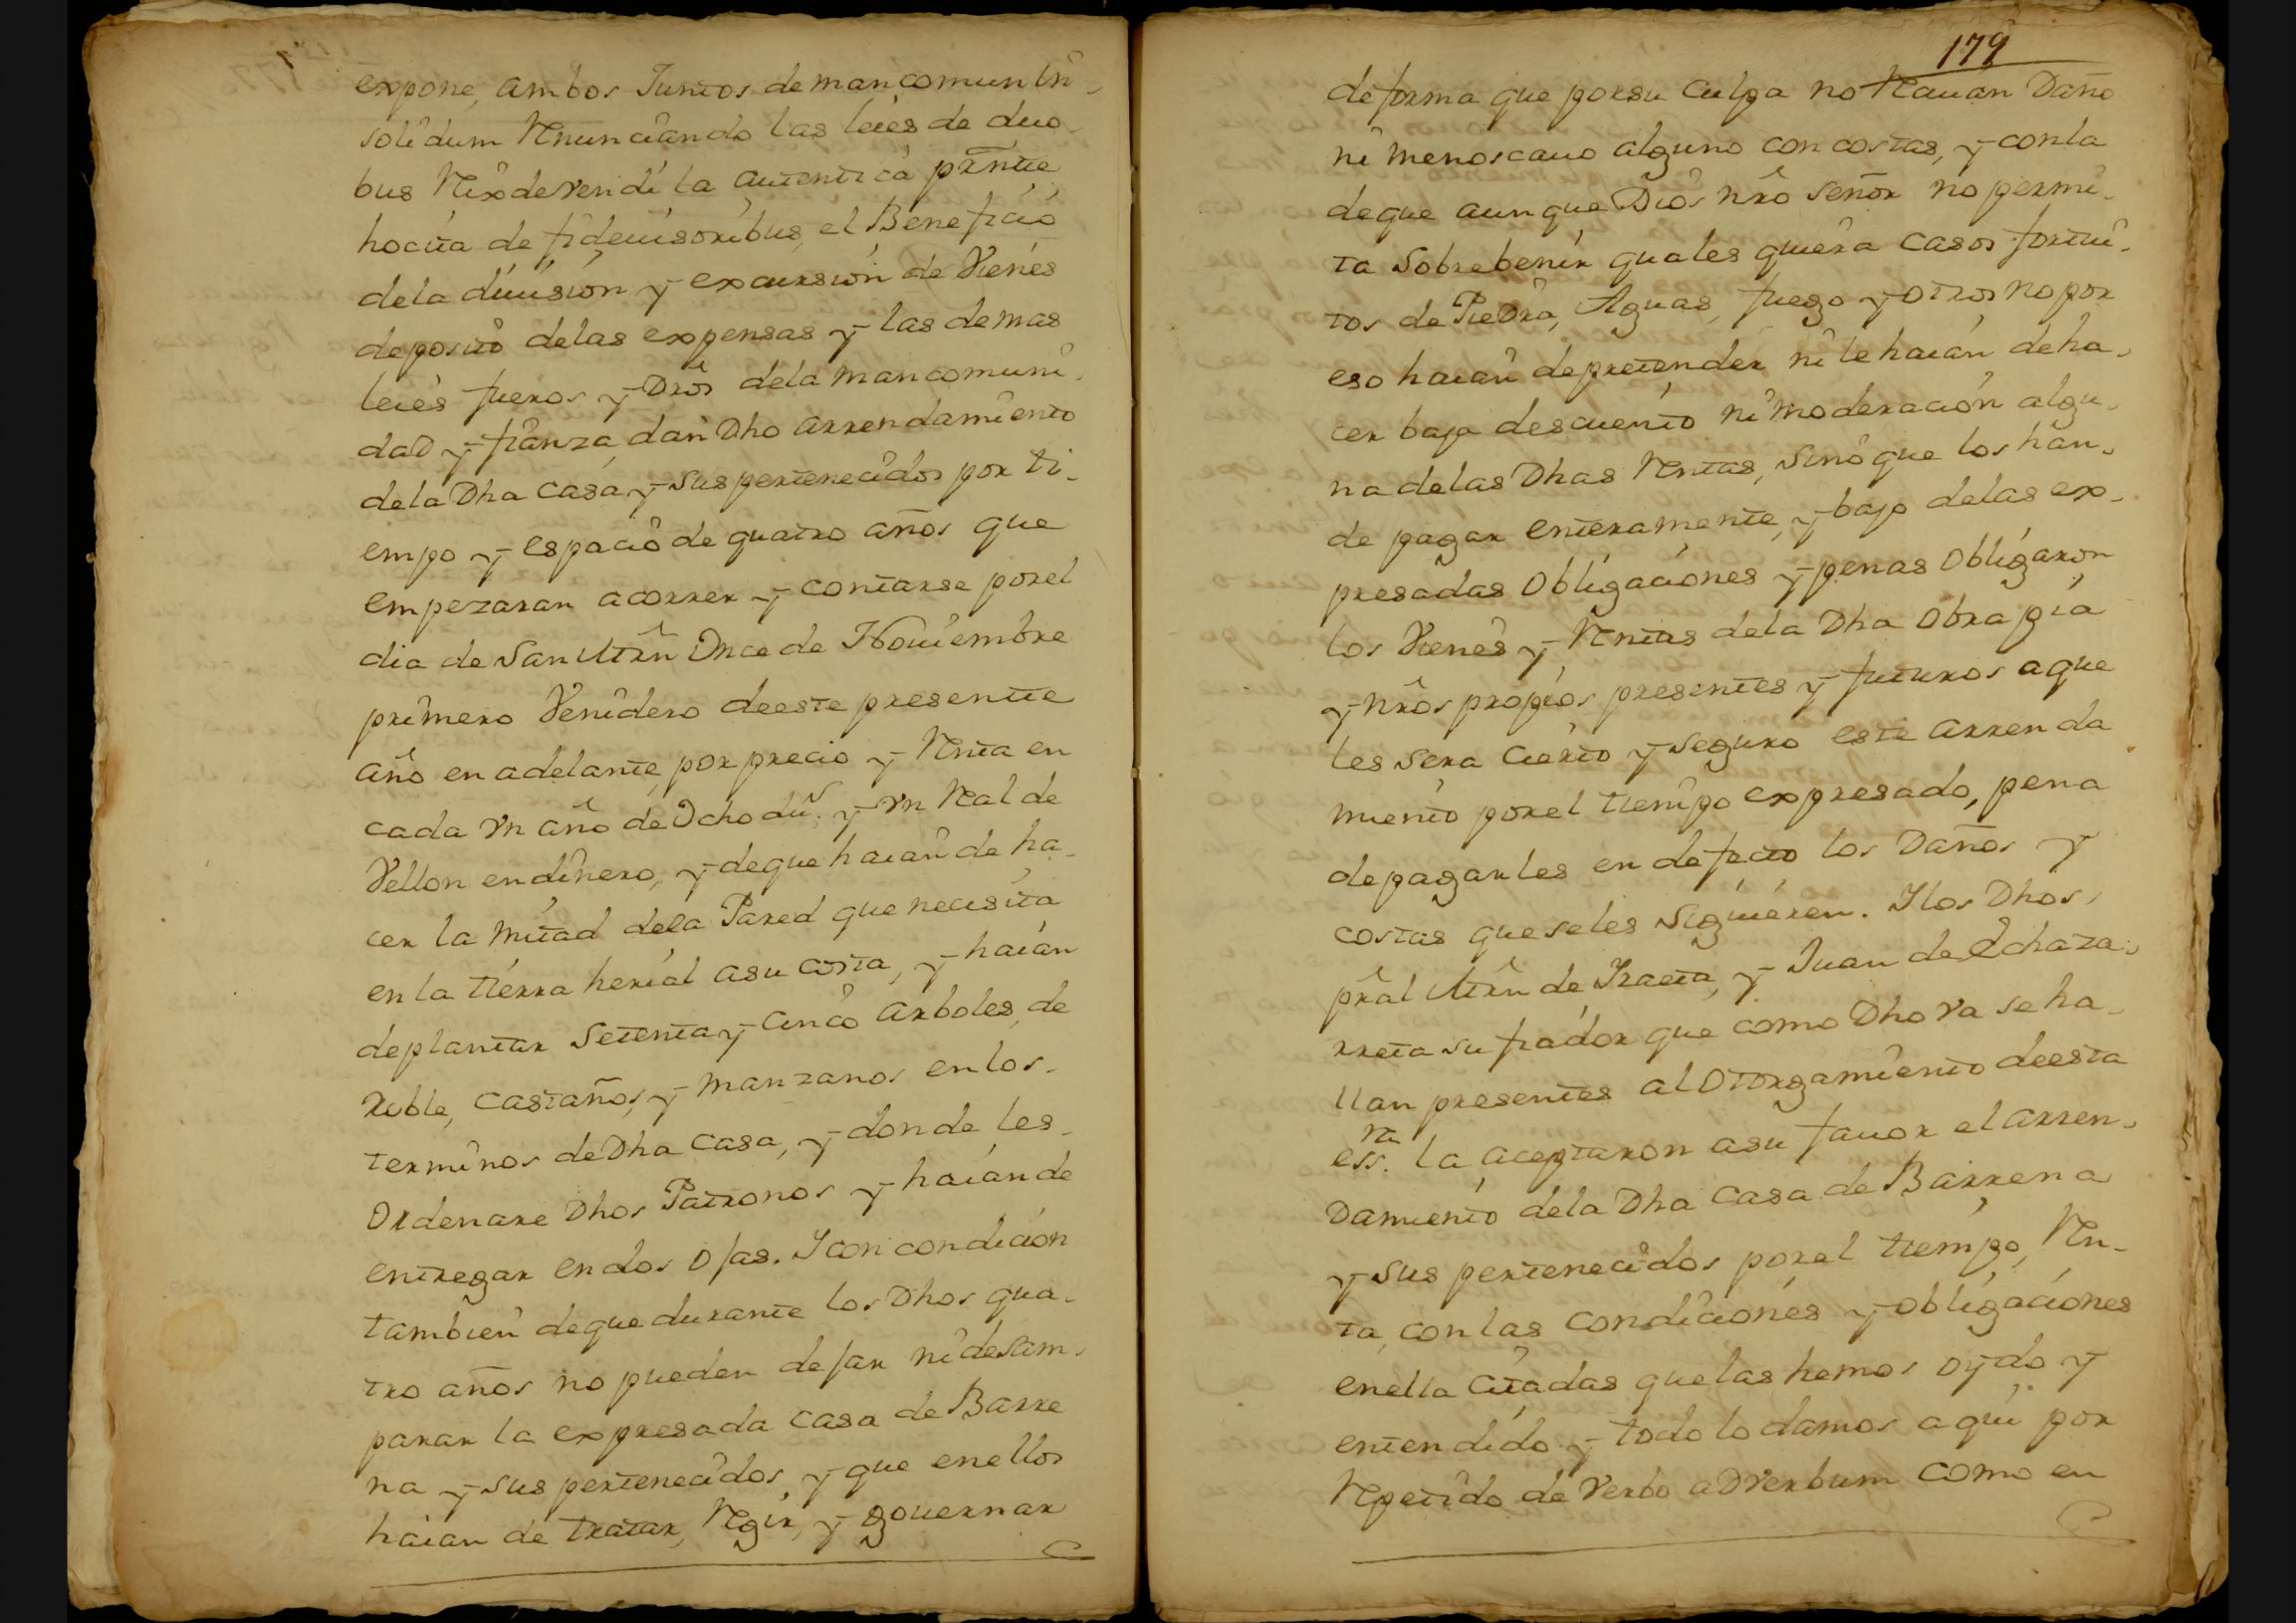 expone, ambos Juntos de mancomun in
solidum Renunciando las leies de duo
bus Reix de vendi la autentica presente
hocita de fideiusoribus, el Beneficio
dela diuision y excursion de Vienes
deposito delas expensas y las demas
leies fueros y Dros dela mancomuni
dad y fianza, dan Dho arrendamiento
dela Dha Casa y sus pertenecidos por ti-
empo y espacio de quatro años que
empezaran acorrer y contarse porel
dia de San Mrn Once de Nouiembre
primero Venidero deeste presente
año en adelante, por precio y Renta en
cada vn año de Ocho dus. y vn Real de
Vellon endinero, y deque haian de ha-
cer la mitad dela Pared que necesita
en la tierra herial asu costa, y haian
deplantar Setenta y cinco arboles, de
Roble, castaños, y manzanos enlos-
terminos de Dha casa, y donde les-
Ordenare Dhos Patronos y haiande
entregar endos ojas. Y con condicion
tambien deque durante los Dhos qua-
tro años no pueden dejar ni desam-
parar la expresada casa de Barre
na y sus pertenecidos, y que enellos
haian de tratar, Regir, y gouernar
179
deforma que porsu culpa no Reciuan Daño
ni menoscauo alguno con costas, y conla
deque aunque Dios nro Señor no permi-
ta Sobrebenir quales quiera casos fortui-
tos de Piedra, Aguas, fuego y otros no por
eso haian depretender ni le haian deha-
cer baja descuento ni moderacion algu-
na delas Dhas Rentas, sino que los han-
de pagar enteramente, y bajo delas ex-
presadas Obligaciones y penas Obligaron
los Vienes y Rentas dela Dha Obra pia
y nros propios presentes y futuros aque
les sera cierto y seguro este arrenda
miento porel tiempo expresado, pena
depagarles en defecto los Daños y
costas que seles Siguieren. Ylos Dhos,
pral Mrn de Yraeta, y Juan de Echaza-
rreta su fiador que como Dho va se ha-
llan presentes al Otorgamiento deesta
essra. la aceptaron asu fauor el arren-
Damiento dela Dha Casa de Barrena
y sus pertenecidos porel tiempo, Ren-
ta, con las condiciones y obligaciones
enella Citadas que las hemos oydo y
entendido y todo lo damos aqui por
Repetido de Verbo adverbum como en